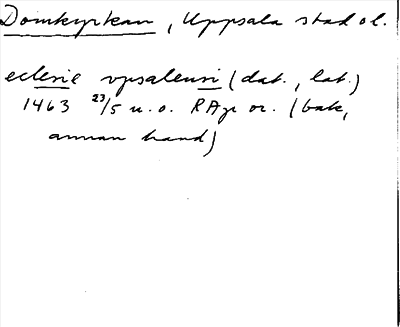 Domkyrkan, Uppsala stad ol.
eclesie vpsalensi (dat., lat.)
1463 23/5 u.o. RAp or. (bak,
annan hand)